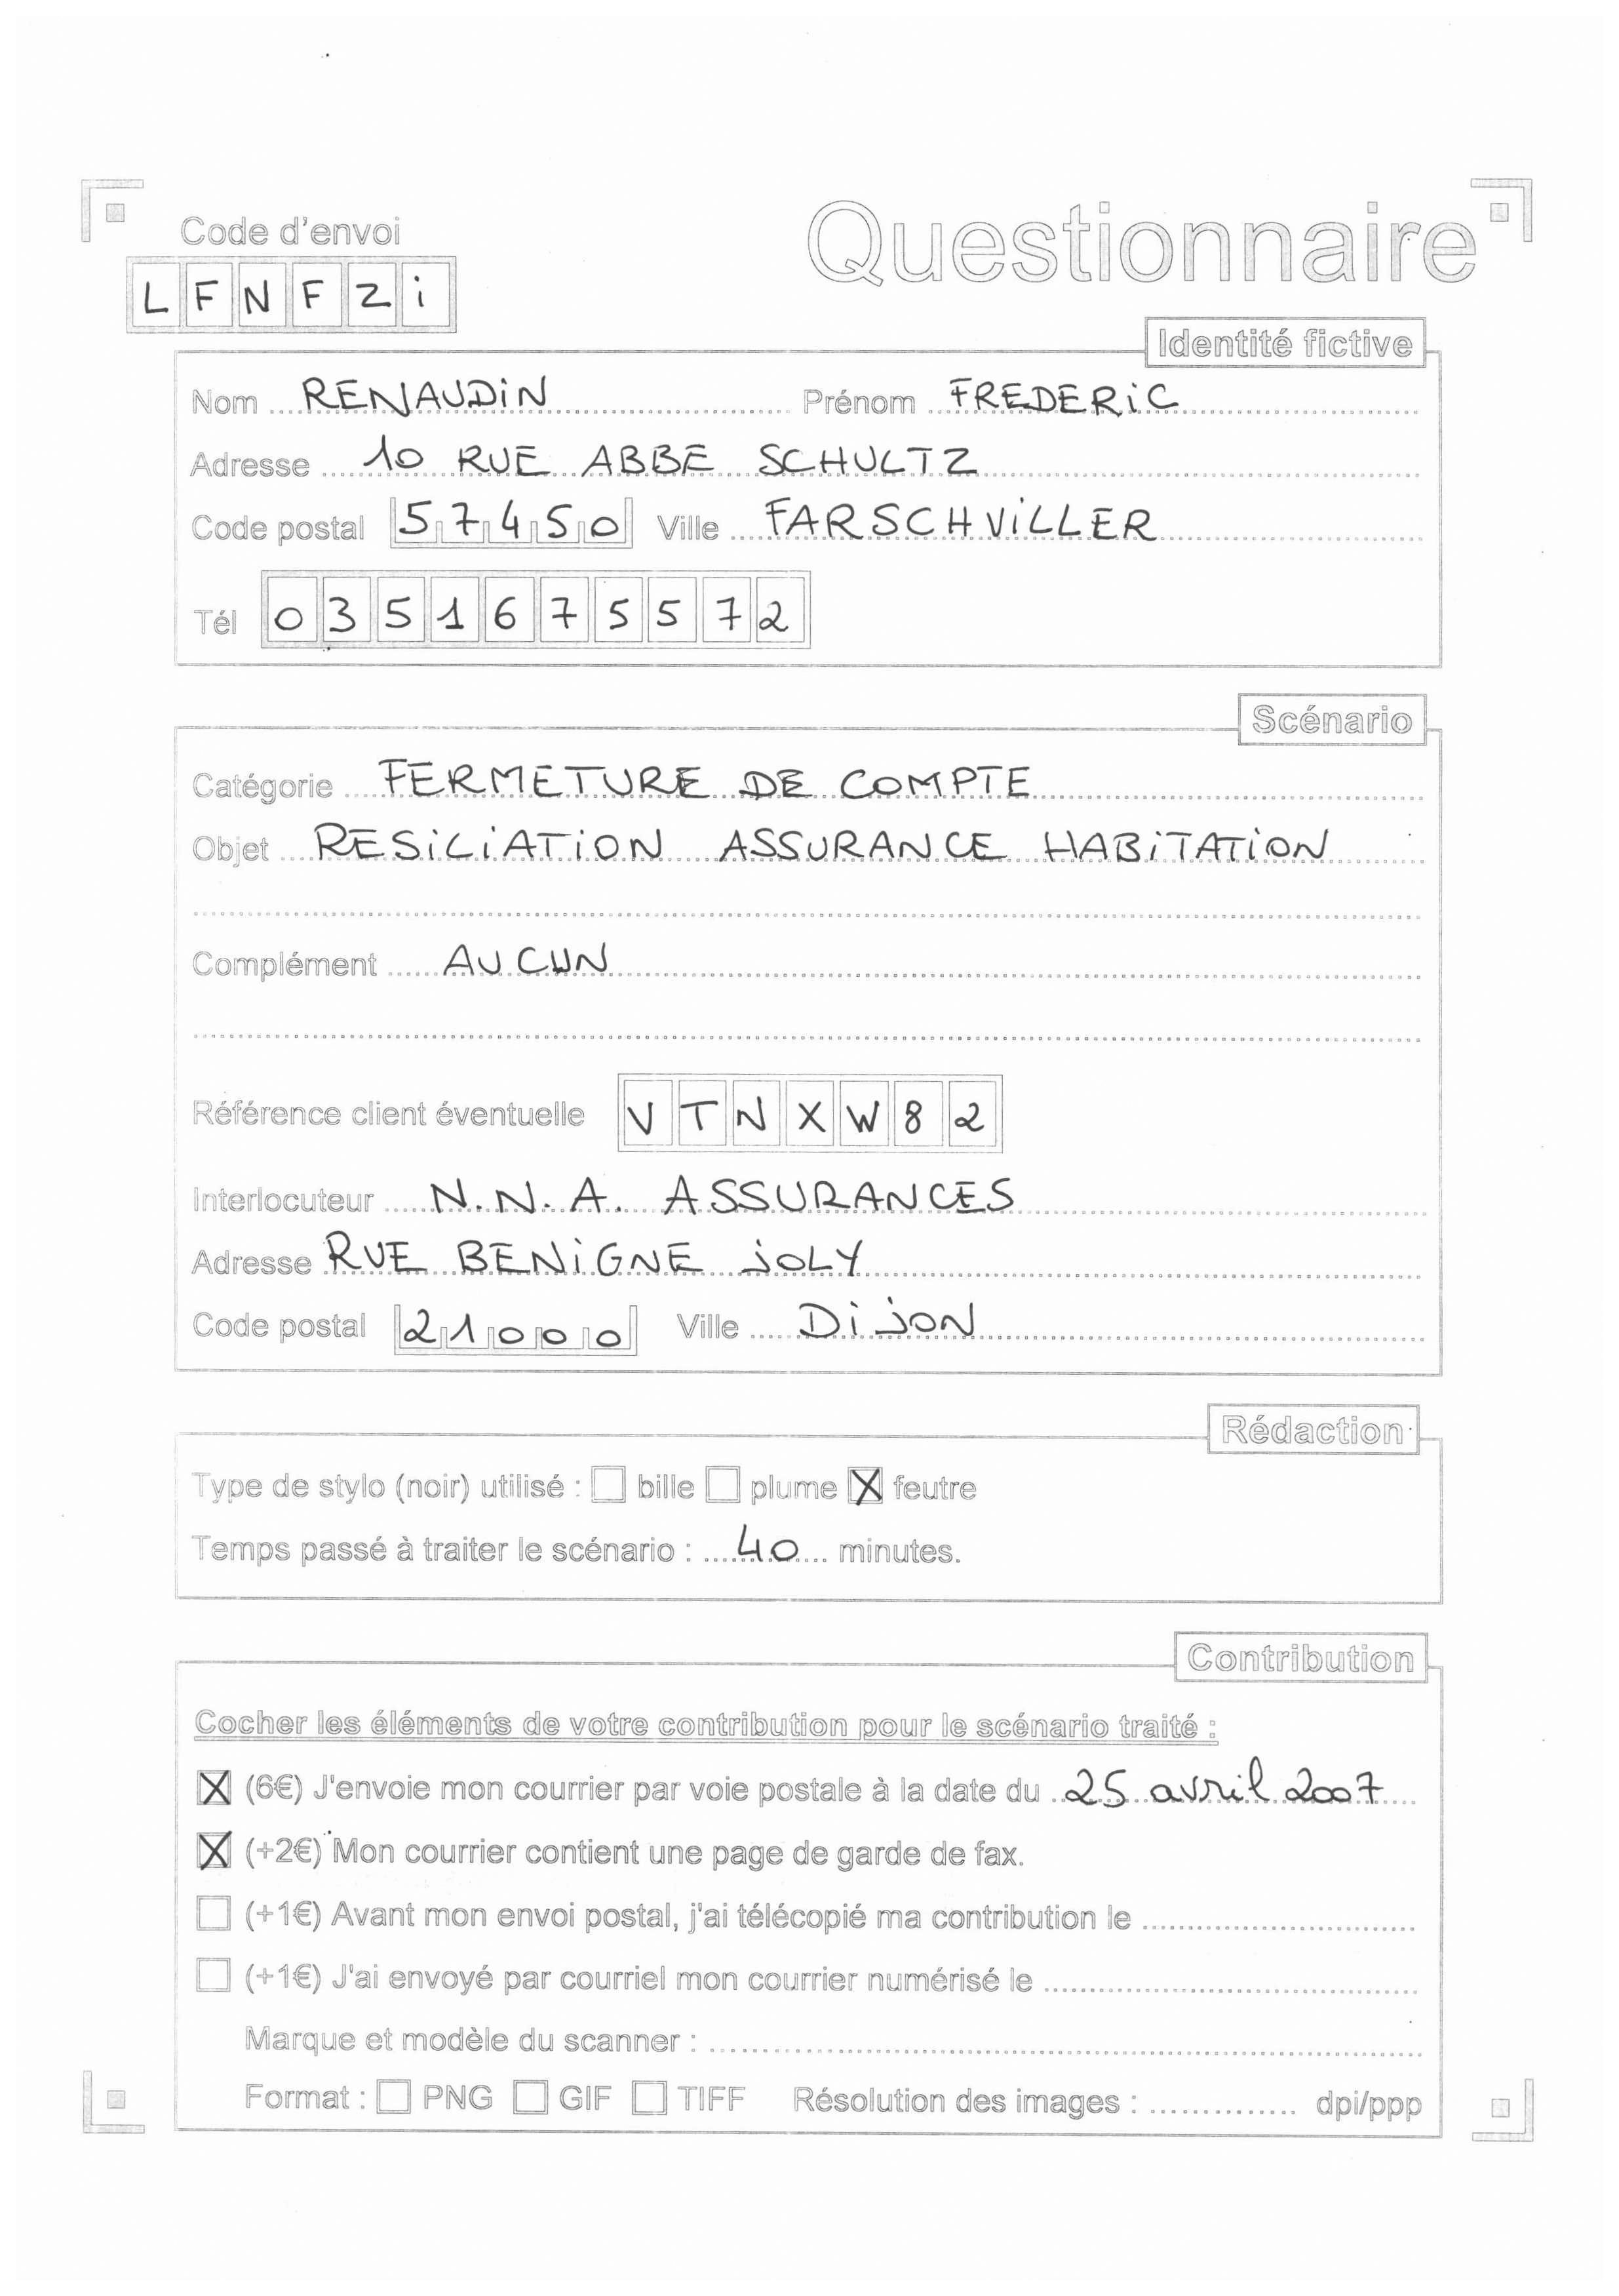 Code d'envoi
Questionnaire
LFNFZi
Identité fictive
Nom RENAUDiN Prénom FREDERiC
Adresse 10 RUE ABBE SCHULTZ
Code postal 57450 Ville FARSCHViLLER
Tél 0351675572
Scénario
Catégorie FERMETURE DE COMPTE
Objet RESiLiATiON ASSURANCE HABiTATiON
Complément AUCUN
Référence client éventuelle VTNXW82
Interlocuteur N.N.A. ASSURANCES
Adresse RUE BENiGNE jOLY
Code postal 21000 Ville DijON
Rédaction
Type de stylo (noir) utilisé : ☐ bille ☐ plume ☒ feutre
Temps passé à traiter le scénario : 40 minutes.
Contribution
Cocher les éléments de votre contribution pour le scénario traité :
☒ (6€) J'envoie mon courrier par voie postale à la date du 25 avril 2007
☒ (+2€) Mon courrier contient une page de garde de fax.
☐ (+1€) Avant mon envoi postal, j'ai télécopié ma contribution le
☐ (+1€) J'ai envoyé par courriel mon courrier numérisé le
Marque et modèle du scanner :
Format : ☐ PNG ☐ GIF ☐ TIFF Résolution des images : dpi/ppp